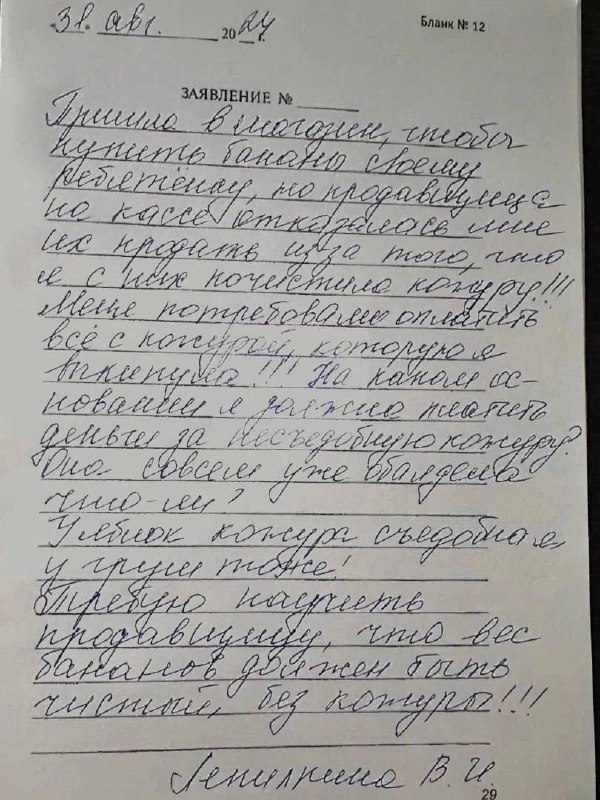 31. авг. 2024 г.
Бланк № 12
ЗАЯВЛЕНИЕ №
Пришла в магазин, чтобы
купить бананы своему
ребятёнку, но продавщица
на кассе отказалась мне
их продать из за того, что
я с них почистила кожуру!!!
Меня потребовали оплатить
всё с кожурой, которую я
выкинула!!! На каком ос-
новании я должна платить
деньги за несъедобную кожуру?
Она совсем уже обалдела
что-ли?
У яблок кожура съедобная
у груш тоже!
Требую научить
продавщицу, что вес
бананов должен быть
чистый, без кожуры!!!
Лепилкина В. И.
29